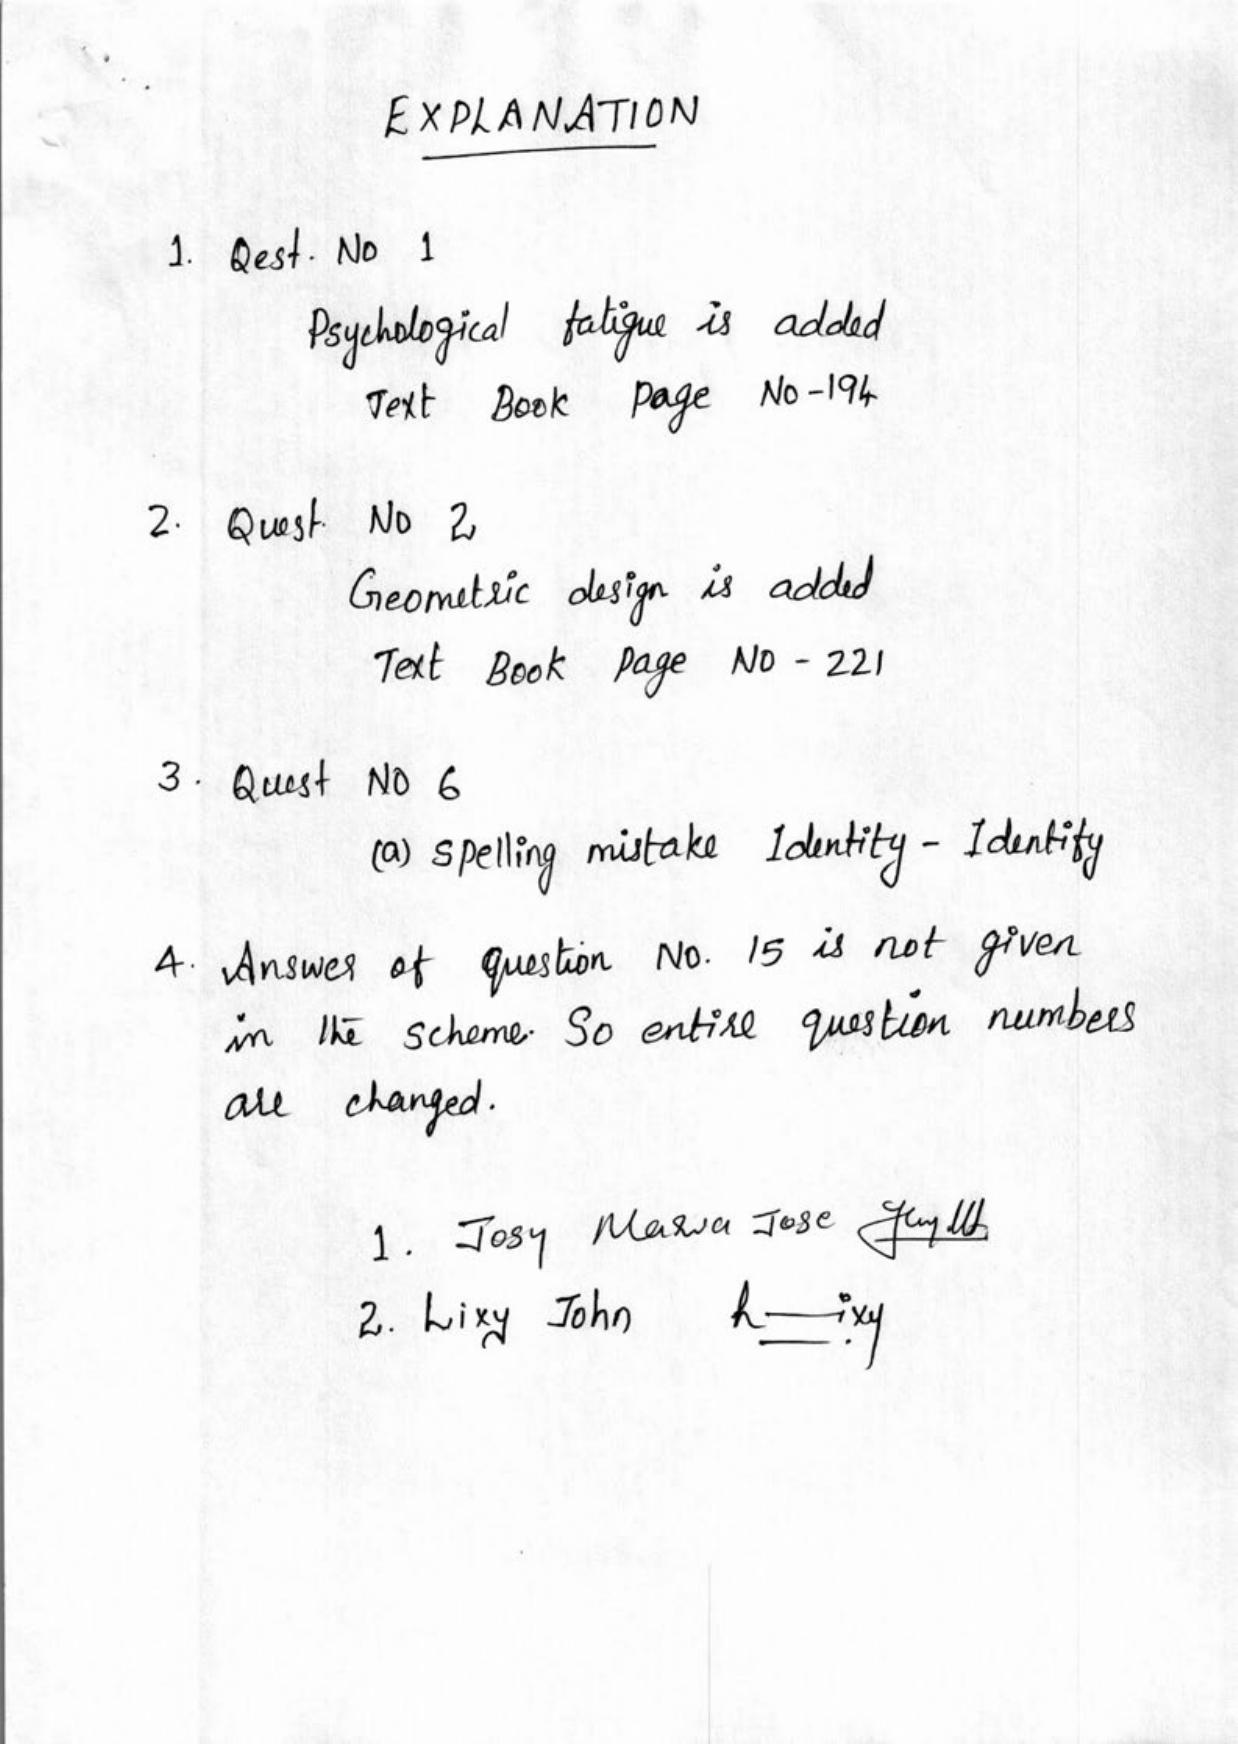 EXPLANATION
1. Qest. No 1
Psychological fatigue is added
Text Book Page No -194
2. Quest. No 2
Geometric design is added
Text Book Page No - 221
3. Quest No 6
(a) Spelling mistake Identity - Identify
4. Answer of question No. 15 is not given
in the scheme. So entire question numbers
are changed.
1. Josy Jose
2. Lixy John Lixy